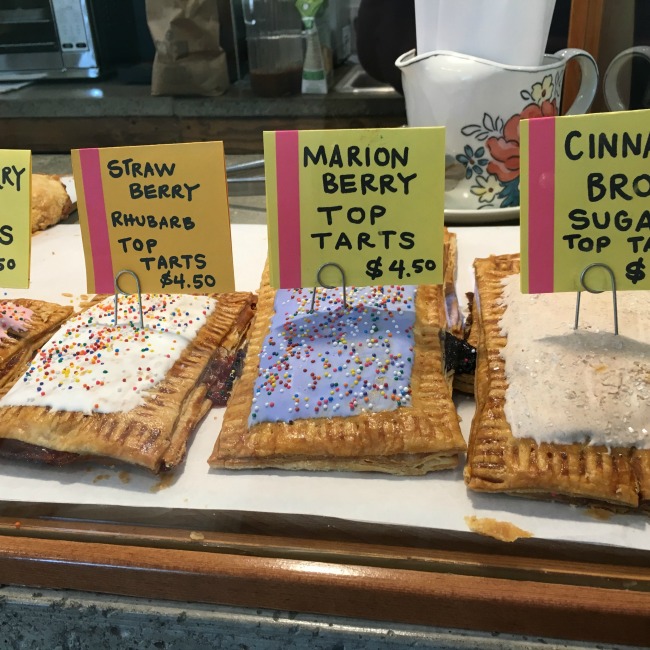 STRAW
BERRY
RHUBARB
TOP
TARTS
$4.50
MARION
BERRY
TOP
TARTS
$4.50
SUGA
TOP TA
$